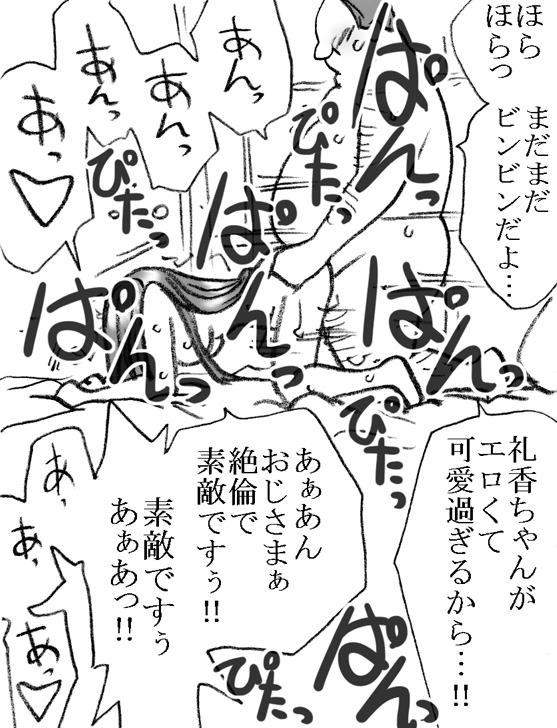 ほら
ほらっ
まだまだ
ビンビンだよ…
ぱんっ
ぴたっ
あんっ
あんっ
あんっ
あっ♡
ぴたっ
ぱんっ
ぱんっ
ぱんっ
ぴたっ
礼香ちゃんが
エロくて
可愛過ぎるから…!!
あぁあん
おじさまぁ
絶倫で
素敵ですぅ!!
素敵ですぅ
あぁあっ!!
ぱんっ
ぴたっ
あ、
あ、
あっ♡